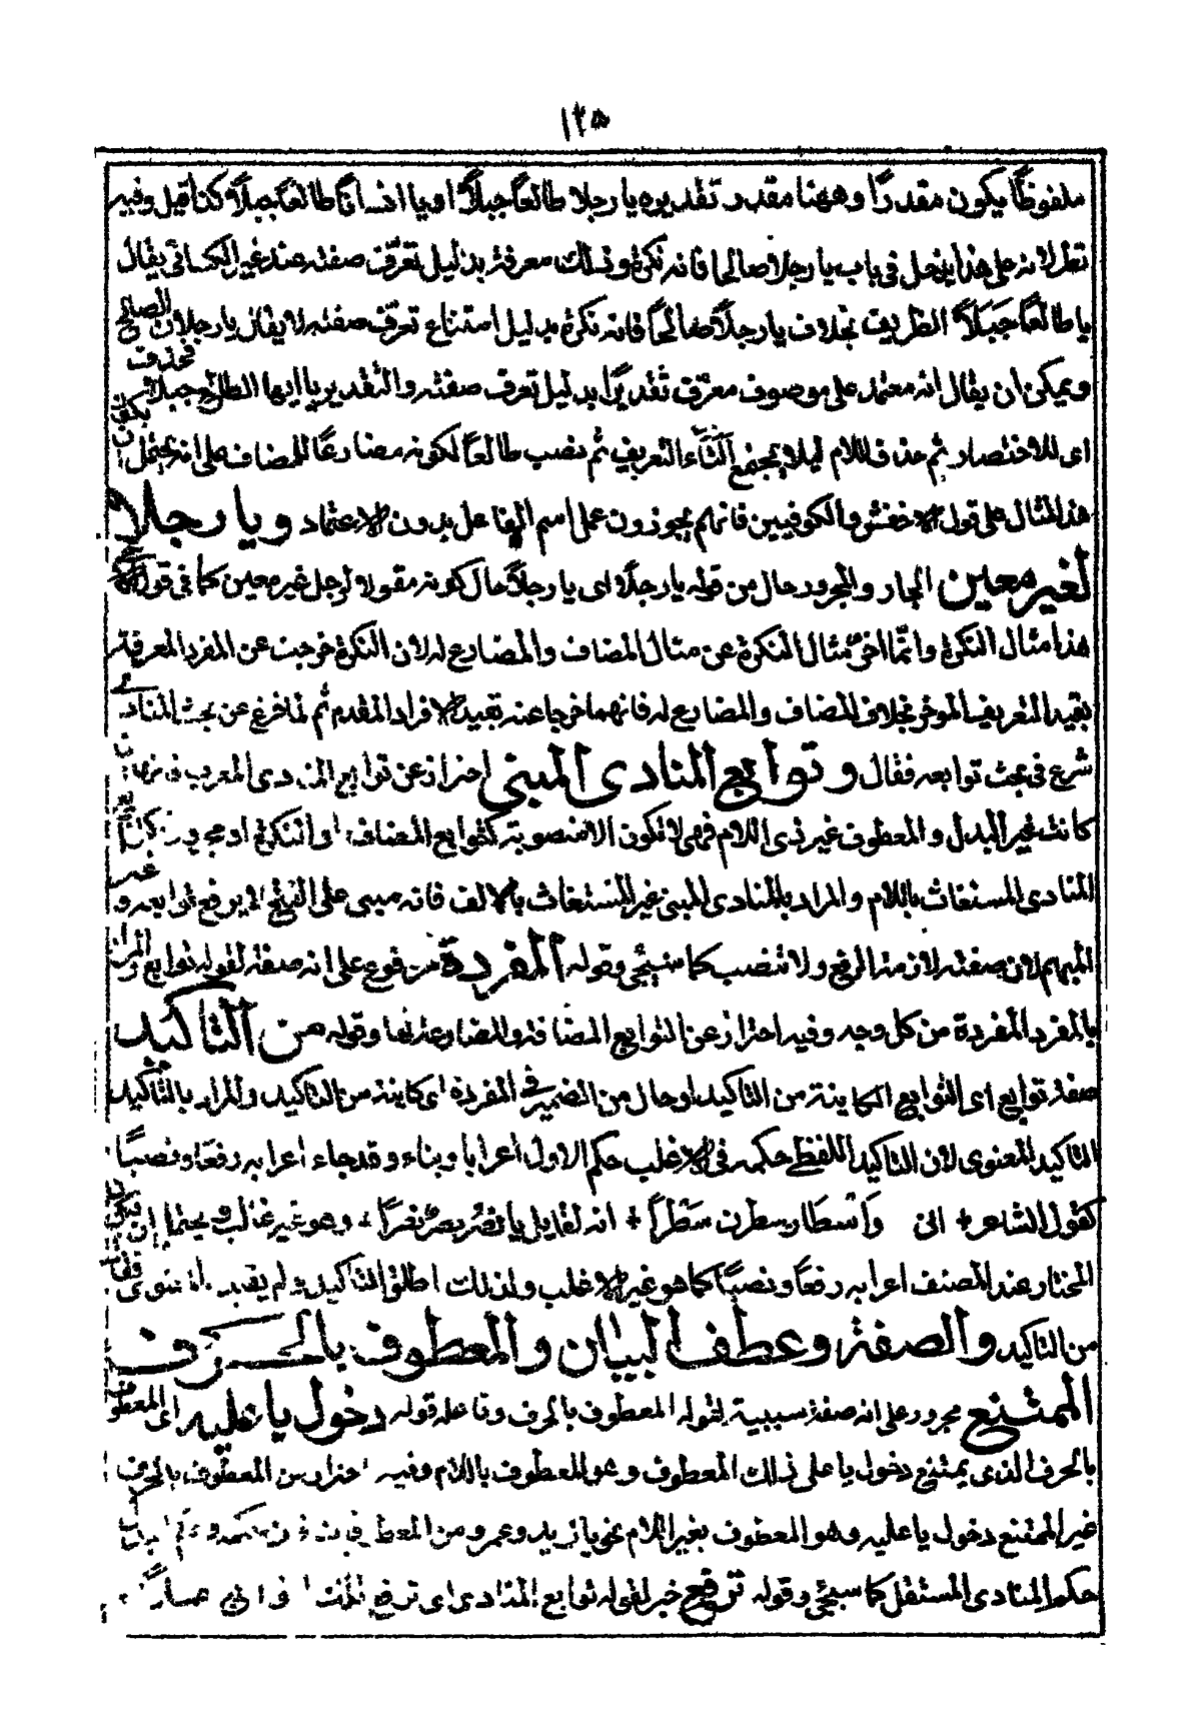 ١٢٥
ملفوظًا يكون مقدرًا وههنا مقدر تقديره يا رجلا طالعًا جبلاً او يا انسانًا طالعًا جبلاً كذا قيل وفيه
نظر لانه على هذا يدخل فى باب يا رجلا صالحا فانه نكرة وذلك معرفة بدليل تعرّف صفته عند غير الكسائى يقال
يا طالعًا جَبَلاً الظريف بخلاف يا رجلاً صالحًا فانه نكرة بدليل امتناع تعرف صفته لا يقال يا رجلا الصالح
ويمكن ان يقال انه معتمد على موصوف معرّف تقديرًا بدليل تعرف صفته والتقدير يا ايها الطالع جبلا فحذفت
اى للاختصار ثم حذف اللام ليلا يجتمع التعريف ثم نصب طالعًا لكونه مضارعًا للمضاف على انه يحتمل ان يكون
هذا المثال على قول الاخفش والكوفيين فانهم يجوزون عمل اسم الفاعل بدون الاعتماد ويا رجلا
لغير معين الجار والمجرور حال من قوله يا رجلاً اى يا رجلاً حال كونه مقولا لرجل غير معين كما فى قول
هذا مثال النكرة وانّما اخر مثال النكرة عن مثال المضاف والمضارع له لان النكرة خرجت عن المفرد المعرفة
بقيد التعريف الموخر بخلاف المضاف والمضارع له فانهما خرجا عنه بقيد الافراد المقدم ثم لما فرغ عن بحث المنادى
شرع فى بحث توابعه فقال وتوابع المنادى المبنى احتراز عن توابع المنادى المعرب فانها ان
كانت غير البدل والمعطوف غير ذى اللام فهى لا تكون الا منصوبة كتوابع المضاف او النكرة او مجرورة كتابع
المنادى المستغاث باللام والمراد بالمنادى المبنى غير المستغاث بالالف فانه مبنى على الفتح لا يرفع توابعه وغير
المبهم لان صفته لازمة الرفع ولا تنصب كما سيجئ وقوله المفردة مرفوع على انه صفة لقوله توابع والمراد
بالمفرد المفردة من كل وجه وفيه احتراز عن التوابع المضافة والمضارعة لها وقوله من التاكيد
صفة توابع اى التوابع الكاينة من التاكيد او حال من الضمير فى المفردة اى كاينة من التاكيد والمراد بالتاكيد
التاكيد المعنوى لان التاكيد اللفظى حكمه فى الاغلب حكم الاول اعرابا وبناء وقد جاء اعرابه رفعًا ونصبًا
كقول الشاعر انى وَاَسْطَارٍ سطرن سَطْراً انه لقايل يا نصر نصرٌ نصرًا وهو غير غالب ويحتمل ان يكون
المختار عند المصنف اعرابه رفعًا ونصبًا كما هو غير الاغلب ولذلك اطلق التاكيد ولم يقيد بالمعنوى
من التاكيد والصفة وعطف البيان والمعطوف بالحرف
الممتنع مجرور على انه صفة سببية لقوله المعطوف بالحرف وفاعله قوله دخول يا عليه اى المعطوف
بالحرف الذى يمتنع دخول يا على ذلك المعطوف وهو المعطوف باللام وفيه احتراز من المعطوف بالحرف
غير الممتنع دخول يا عليه وهو المعطوف بغير اللام نحو يا زيد وعمرو ومن المعطوف
حكم المنادى المستقل كما سيجئ وقوله ترفع خبر لقوله توابع المنادى اى ترفع